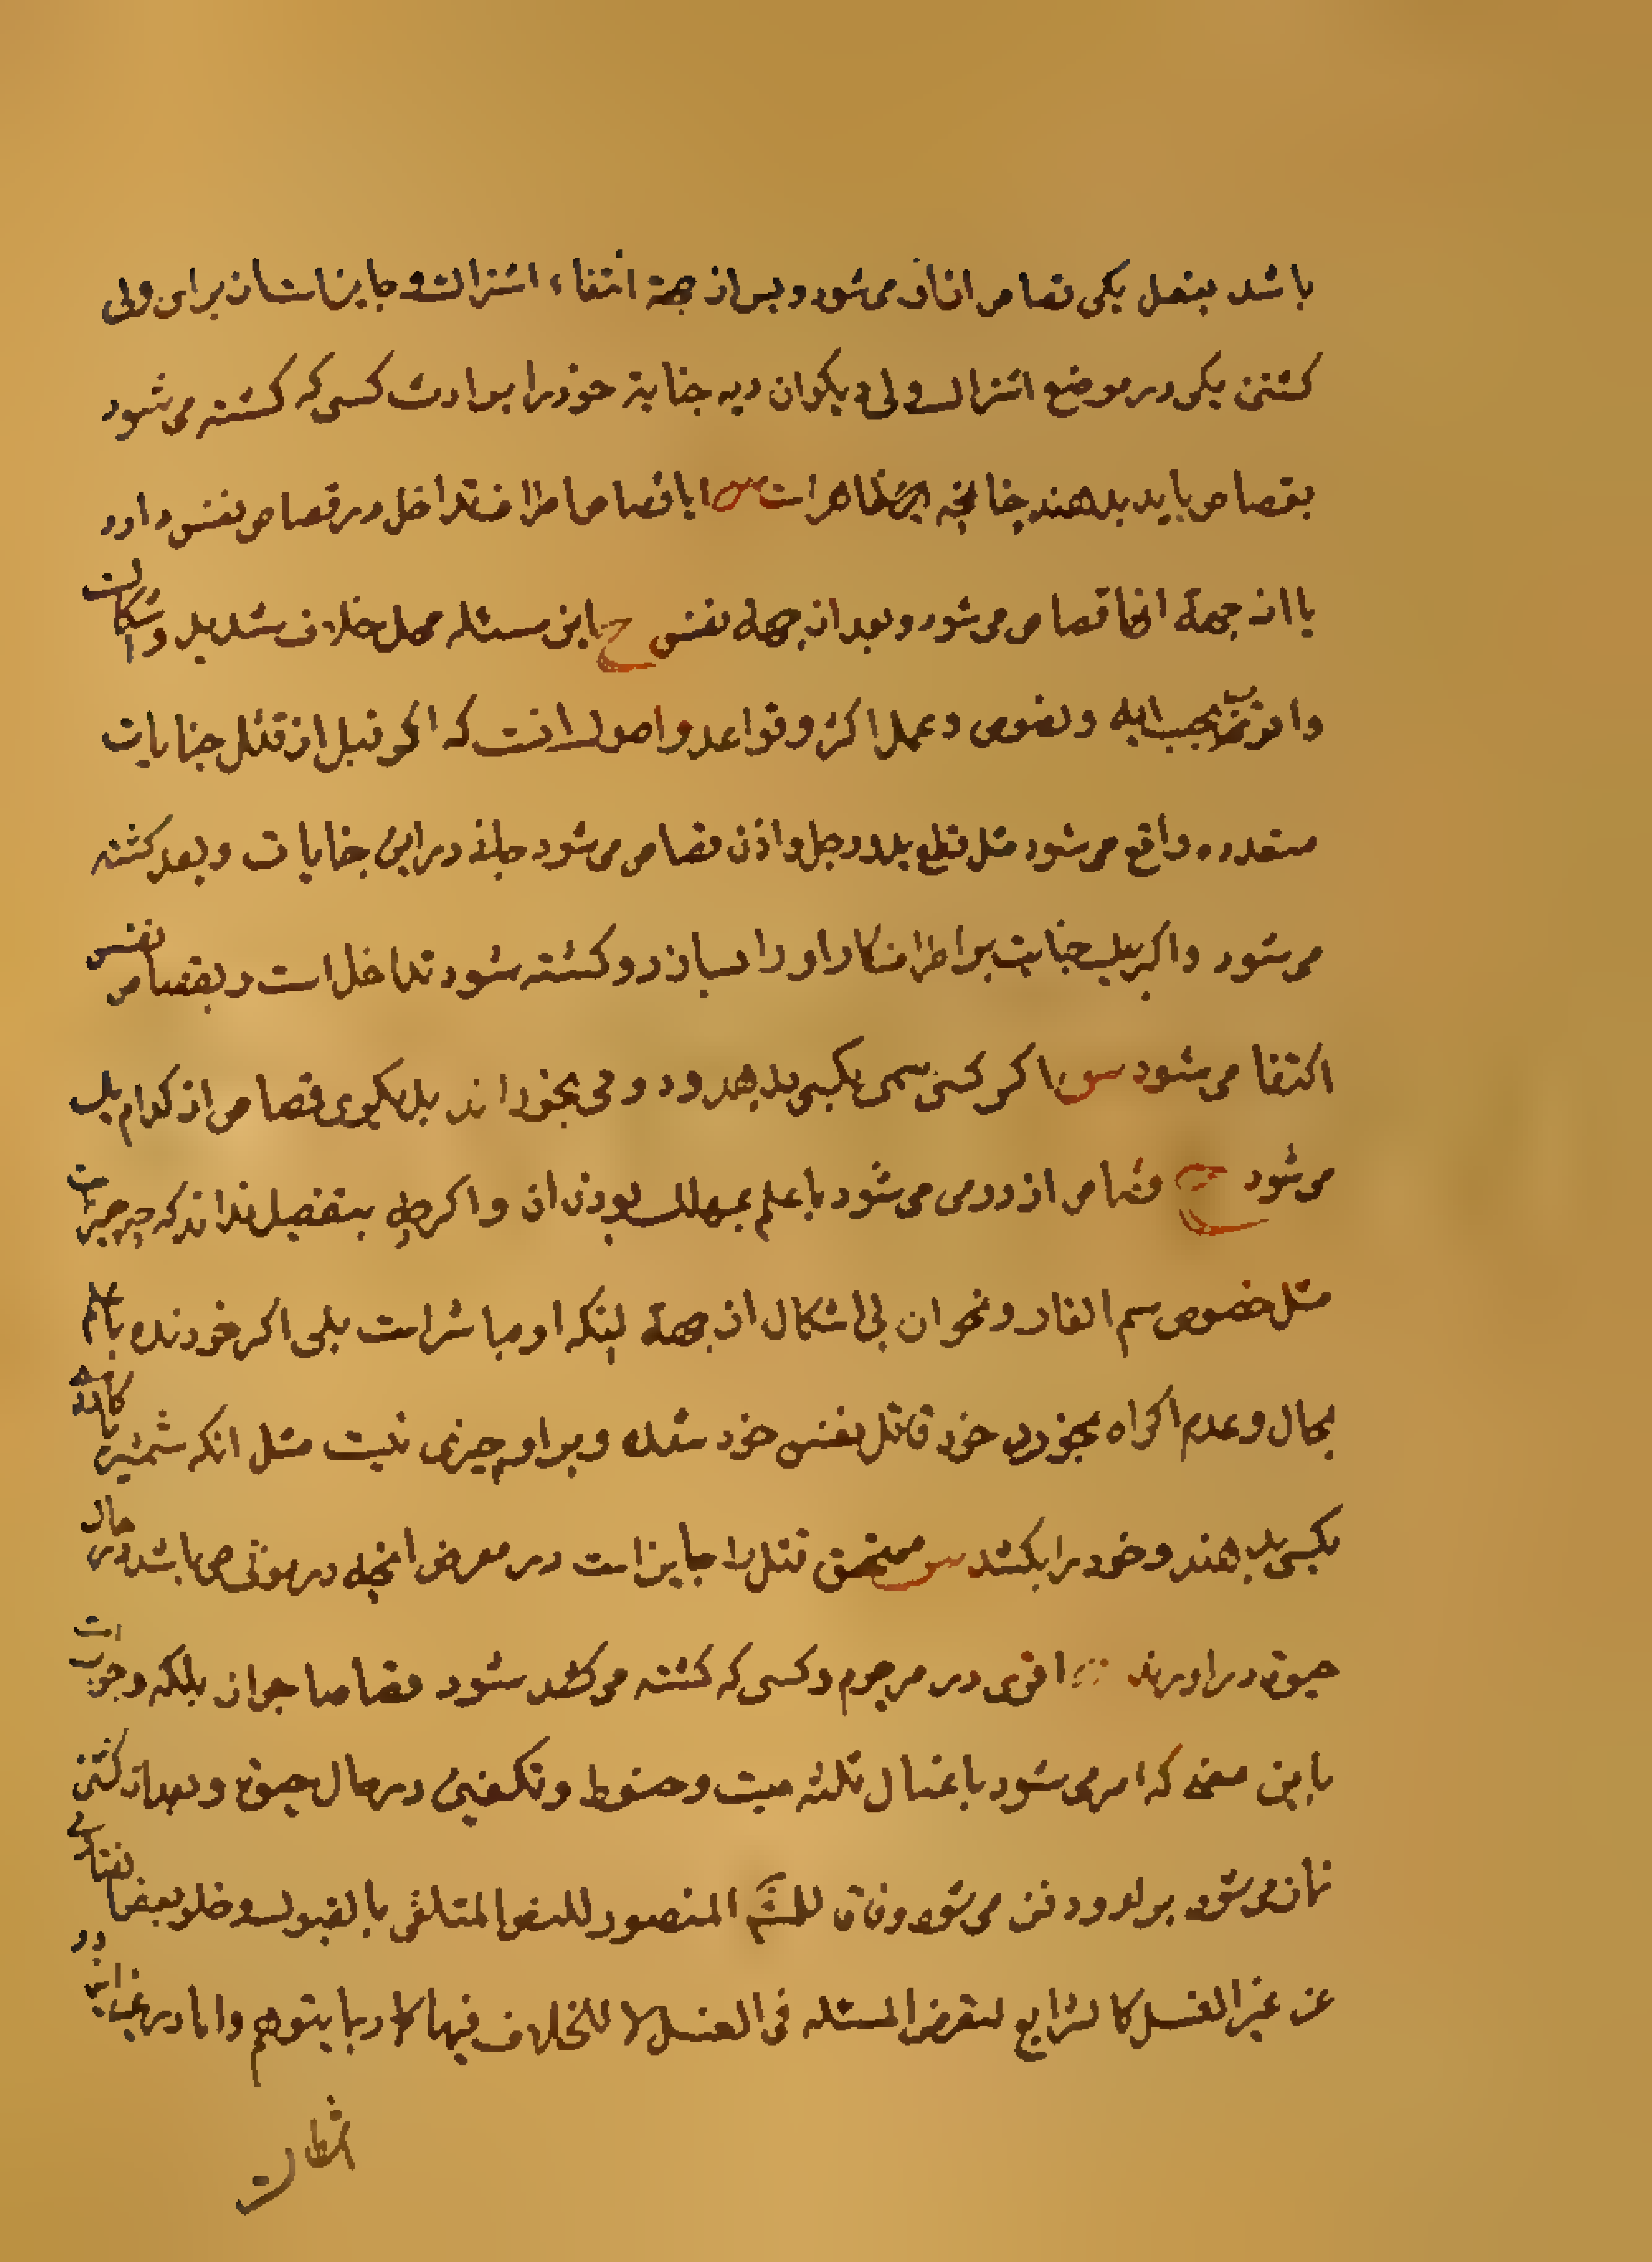 باشد بفعل یکی قصاص از ان می‌شود و پس از جهة انتفاء اشتراک و جایز است از برای ولی
کشتن یکی در موضع اشتراک ولی دیکران دیه جنایة خود را بوارث کسی که کشته می‌شود
بقصاص باید بدهند چنانچه ظاهر است س ایا قصاص اطراف تداخل در قصاص نفس دارد
یا از جهة انها قصاص می‌شود و بعد از جهة نفس ج این مسئله محل خلاف شدید و اشکالست
و ادله و نصوص و عمل اکثر و قواعد و اصول انست که اکر قبل از قتل جنایات
متعدده واقع می‌شود مثل قطع ید و رجل و اذن قصاص می‌شود جانی در این جنایات و بعد کشته
می‌شود و اکر بیک جنایت بر اطراف کار او را بسازد و کشته شود تداخل است و بقصاص نفس
اکتفا می‌شود س اکر کسی سمی بکسی بدهد و دومی بخوراند بدیکری قصاص از کدام یک
می‌شود ج قصاص از دومی می‌شود با علم بمهلک بودن ان و اکرچه بتفصیل نداند که چه چیز است
مثل خصوص سم الفار و نحو ان بی اشکال از جهة اینکه او مباشر است بلی اکر خورنده با علم
بحال و عدم اکراه بخورد خود قاتل نفس خود شده و بر او چیزی نیست مثل انکه شمشیر یا کاردی
بکسی بدهند و خود را بکشد س مستحق قتل را جایز است در معرض انچه در موتی می‌باشد در حال
حیوة در اورند ج اقوی در مرجوم و کسی که کشته می‌شود قصاصا جواز بلکه وجوب است
باین معنی که امر می‌شود باغسال ثلثه میت و حنوط و تکفین در حال حیوة و بعد از کشتن
نماز می‌شود بر او و دفن می‌شود وفاقا للش المنصور للنص المتلقی بالقبول و خلو بعض الفتاوی
عن غیر الغسل کالشرایع لتعرض المسئله فی الغسل لا للخلاف فیها کما ربما یتوهم و اما در غیر این دو